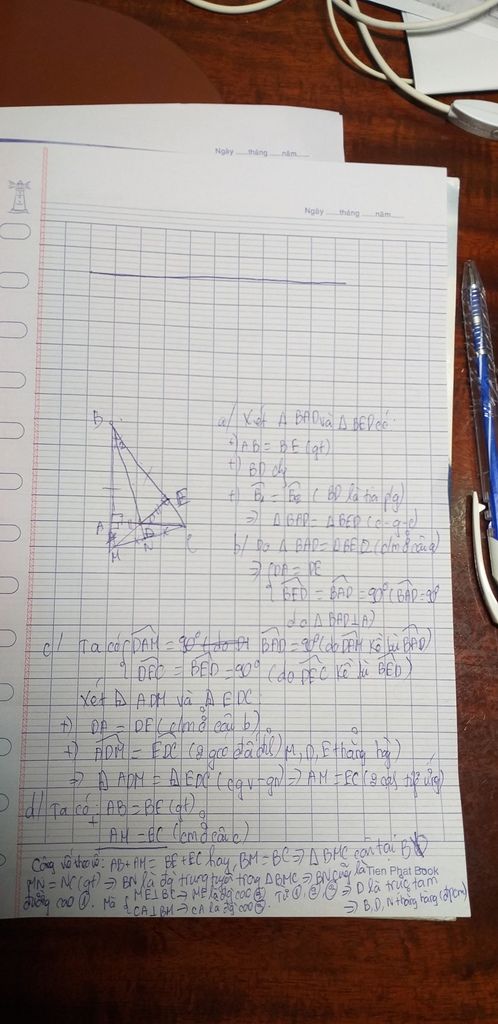 Ngày ..... tháng ..... năm.....
Ngày ..... tháng ..... năm.....
B
A
M
N
E
C
a/ Xét Δ BAD và Δ BED có
+) AB = BE (gt)
+) BD chg
+) B1 = B2 ( BD là tia p/g)
⇒ Δ BAD = Δ BED (c-g-c)
b/ Do Δ BAD = Δ BED (c/m ở câu a)
⇒ DA = DE
BED = BAD = 90° (BAD = 90°
do Δ BAD ⊥ A)
c/ Ta có DAM = 90° BAD = 90° (do DAM kề bù BAD)
DEC = BED = 90° (do DEC kề bù BED)
Xét Δ ADM và Δ EDC
+) DA = DE (c/m ở câu b)
+) ADM = EDC (2 góc đđ) M, D, E thẳng hàng
⇒ Δ ADM = Δ EDC (cgv-gn) ⇒ AM = EC (2 cạnh tg ứng)
d/ Ta có: AB = BE (gt)
+ AM = EC (cm ở câu c)
Cộng vế AB + AM = BE + EC hay BM = BC ⇒ Δ BMC cân tại B
MN = NC (gt) ⇒ BN là đg trung tuyến trong Δ BMC ⇒ BN cũng là
Tien Phat Book
đường cao ①. Mà ME ⊥ BC ⇒ ME là đg cao ②. Từ ①, ②, ③ ⇒ D là trực tâm
CA ⊥ BM ⇒ CA là đg cao ③. ⇒ B, D, N thẳng hàng (đpcm)